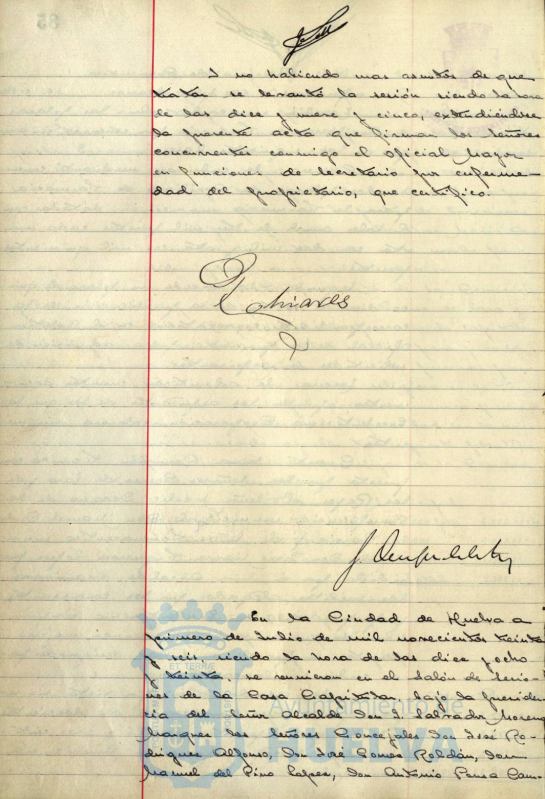 Y no habiendo mas asuntos de que
tratar se levantó la sesión siendo la hora
de las diez y nueve y cinco, extendiéndose
la presente acta que firman los señores
concurrentes conmigo el oficial Mayor
en funciones de Secretario por enferme-
dad del propietario, que certifico.
En la Ciudad de Huelva a
primero de Julio de mil novecientos treinta
y seis siendo la hora de las diez y ocho
y treinta, se reunieron en el Salón de Sesio-
nes de la Casa Capitular, bajo la presiden-
cia del Señor Alcalde Don Salvador Moreno
Marquez los Señores Concejales don José Ro-
driguez Alfonso, don José Gomez Roldán, don
Manuel del Pino Lopez, don Antonio Pousa Cam-
Ayuntamiento de
HUELVA